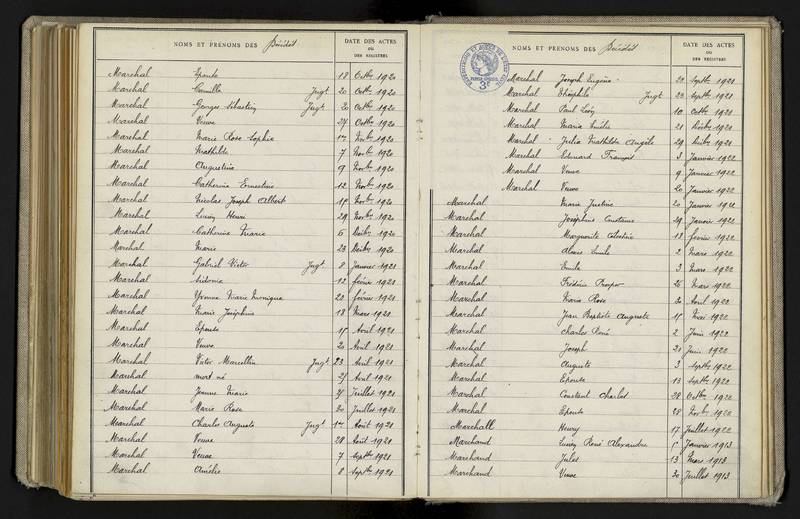 NOMS ET PRÉNOMS DES Décédés
DATE DES ACTES
OU
DES REGISTRES
Marechal Epouse 18 Octbre 1920
Marechal Camille Jugt 20 Octbre 1920
Marechal Georges Sébastien Jugt 20 Octbre 1920
Marechal Veuve 27 Octbre 1920
Marechal Marie Rose Sophie Novbre 1920
Marechal Mathilde 7 Novbre 1920
Marechal Augustine 9 Novbre 1920
Marechal Catherine Ernestine 12 Novbre 1920
Marechal Nicolas Joseph Albert Novbre 1920
Marechal Lucien Henri 29 Novbre 1920
Marechal Catherine Marie 6 Décbre 1920
Marechal Marie 23 Décbre 1920
Marechal Gabriel Victor Jugt 8 Janvier 1921
Marechal Sidonie 12 février 1921
Marechal Yvonne Marie Monique 22 février 1921
Marechal Marie Joséphine 18 Mars 1921
Marechal Epouse Avril 1921
Marechal Veuve 20 Avril 1921
Marechal Victor Marcellin Jugt 23 Avril 1921
Marechal mort né Avril 1921
Marechal Jeanne Marie Juillet 1921
Marechal Marie Rose 30 Juillet 1921
Marechal Charles Auguste Jugt Août 1921
Marechal Veuve 28 Août 1921
Marechal Veuve 7 Septbre 1921
Marechal Amélie 8 Septbre 1921
NOMS ET PRÉNOMS DES Décédés
DATE DES ACTES
OU
DES REGISTRES
3F
Marechal Joseph Eugène 20 Septbre 1921
Marechal Théophile Jugt 23 Septbre 1921
Marechal Paul Léon 10 Octbre 1921
Marechal Maria Emélie 21 Décbre 1921
Marechal Julia Mathilde Angèle 29 Décbre 1921
Marechal Edouard François 3 Janvier 1922
Marechal Veuve 9 Janvier 1922
Marechal Veuve 20 Janvier 1922
Marechal Marie Justine 20 Janvier 1922
Marechal Joséphine Constance 29 Janvier 1922
Marechal Marguerite Célestine 13 février 1922
Marechal Emile 2 Mars 1922
Marechal Emile 3 Mars 1922
Marechal Frédéric Prosper 26 Mars 1922
Marechal Maria Rose 30 Avril 1922
Marechal Jean Baptiste Auguste Mai 1922
Marechal Charles René 2 Juin 1922
Marechal Joseph 20 Juin 1922
Marechal Auguste 3 Septbre 1922
Marechal Epouse 13 Septbre 1922
Marechal Constant Charles 28 Octbre 1922
Marechal Epouse 28 Novbre 1922
Marechall Henry 17 Juillet 1922
Marchand Lucien René Alexandre Janvier 1913
Marchand Jules 13 Mars 1913
Marchand Veuve 30 Juillet 1913